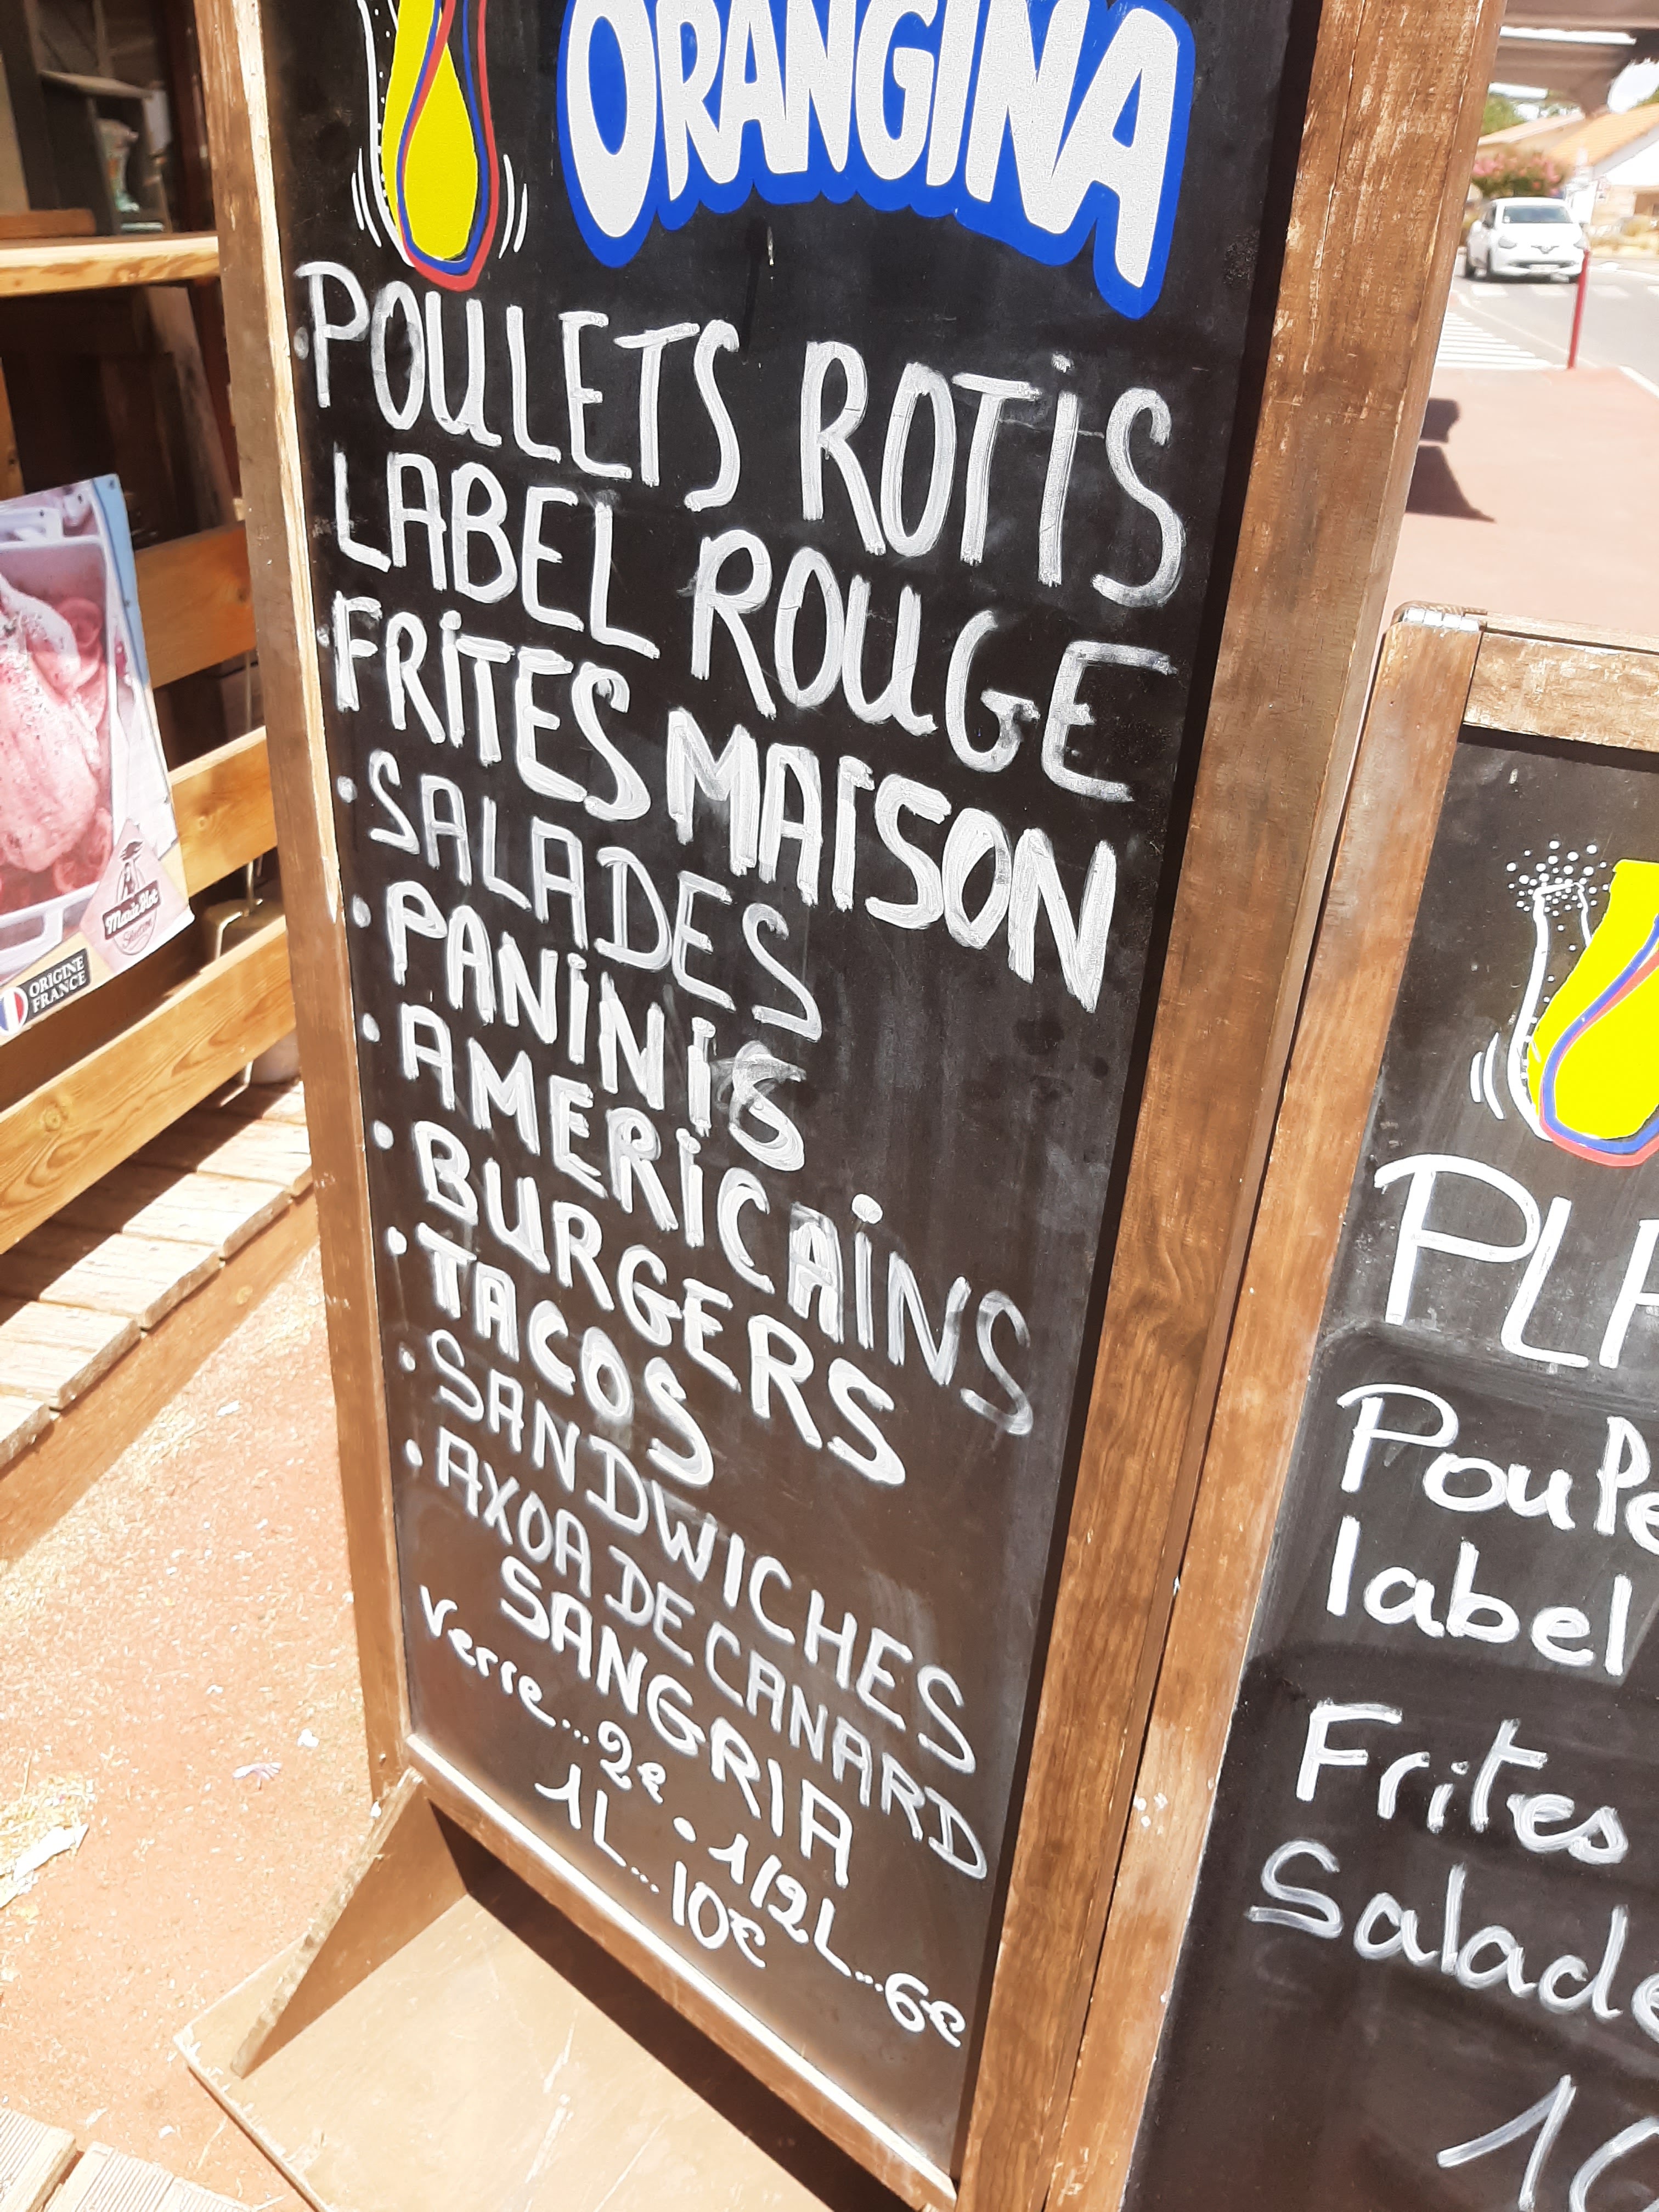 ORANGINA
• POULETS ROTIS
LABEL ROUGE
FRITES MAISON
• SALADES
• PANINIS
• AMERICAINS
• BURGERS
• TACOS
• SANDWICHES
• AXOA DE CANARD
SANGRIA
Verre...2€ • 1/2L...6€
1L...10€
Marie Hot
Sélection
ORIGINE
FRANCE
PLA
Poule
label
Frites
Salade
10